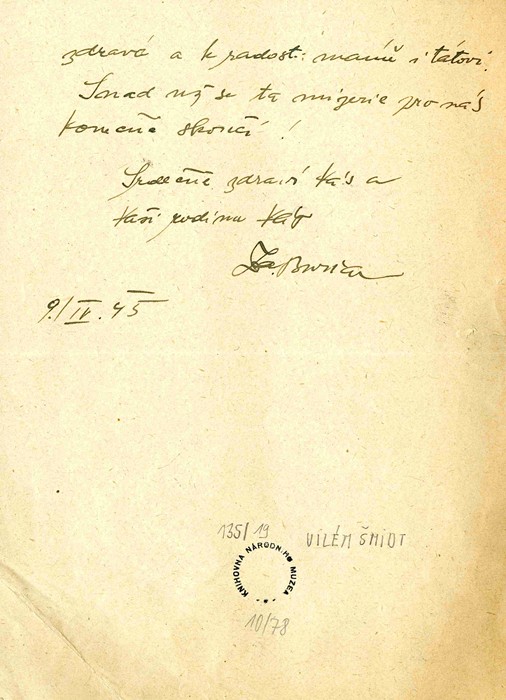 zdravé a k radosti mámě i tátovi.
Snad už se ta mizerie pro nás
konečně skončí!
Srdečně zdraví Vás a
Vaši rodinu Váš
Zd. Burian
9./IV. 45
135/19 VILÉM ŠMIDT
KNIHOVNA NÁRODNÍHO MUZEA
10/78